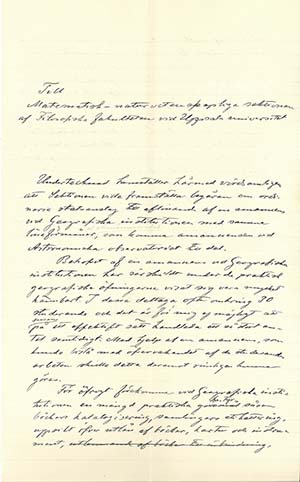 Till
Matematisk-naturvetenskapliga sektionen
af Filosofiska Fakulteten vid Uppsala universitet
Undertecknad hemställer härmed
att Sektionen ville framställa begäran om ordi-
narie statsanslag för aflönande af en amanuens
vid Geografiska institutionen med samma
löneförmåner, som amanuensen vid
Astronomiska observatoriet
Behofvet af en amanuens vid Geografiska
institutionen har särskildt under de praktiska
geografiska öfningarne visat sig vara mycket
kännbart. I dessa deltaga ofta omkring 30
studerande och det är för mig ej möjligt att
på ett effektivt sätt handleda ett så stort an-
tal samtidigt. Med hjelp af en amanuens, som
kunde de studerandes
arbeten skulle detta deremot
göra.
För öfrigt förekomma vid Geografiska insti-
tutionen en mängd praktiska göromål såsom
böckers katalogisering, samlingars etikettering,
af böcker, kartor och instru-
ment, af böcker inbindning,